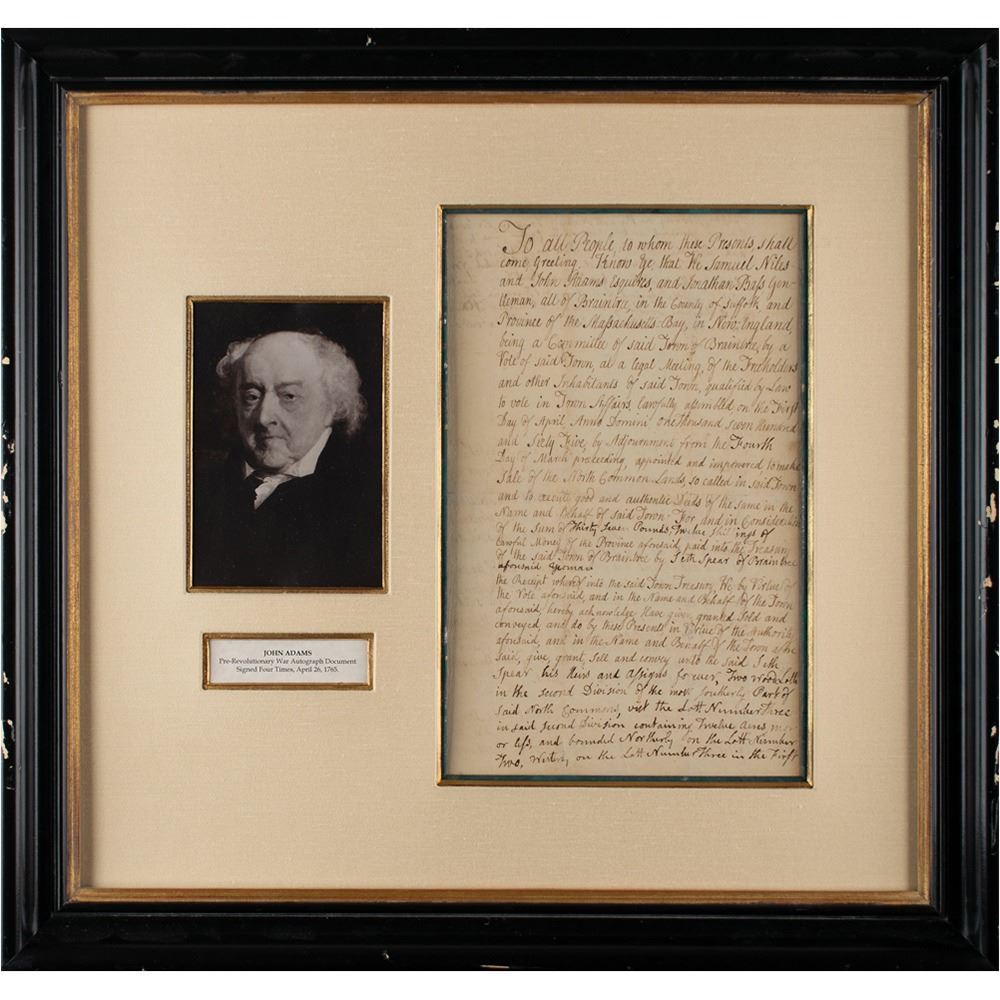 JOHN ADAMS
Pre-Revolutionary War Autograph Document
Signed Four Times, April 26, 1765.
To all People, to whom these Presents, shall
come, Greeting. Know Ye, that We Samuel Niles
and John Adams Esquires, and Jonathan Bass Gen-
tleman, all of Braintree, in the County of Suffolk and
Province of the Massachusetts-Bay, in New-England,
being a Committee of said Town of Braintree, by a
Vote of said Town, at a legal Meeting, of the Freeholders
and other Inhabitants of said Town, qualified by Law
to vote in Town Affairs, lawfully assembled on the First
Day of April, Anno Domini one thousand seven Hundred
and Sixty Five, by Adjournment from the Fourth
Day of March preceeding, appointed and impowered to make
Sale of the North Common Lands, so called in said Town
and to execute good and authentic Deeds of the same in the
Name and Behalf of said Town. For, and in Consideration
of the Sum of Thirty Seven Pounds, Twelve Shillings of
lawful Money of the Province aforesaid, paid into the Treasury
of the said Town of Braintree by Seth Spear of Braintree
aforesaid yeoman
the Receipt whereof into the said Town Treasury, We by Virtue of
the Vote aforesaid, and in the Name and Behalf of the Town
aforesaid, hereby acknowledge, Have given, granted Sold and
conveyed, and do by these Presents in Virtue of the Authority
aforesaid, and in the Name and Behalf of the Town afore
said, give, grant, sell and convey unto the said Seth
Spear his Heirs and Assigns forever, Two Wood Lotts
in the second Division of the most southerly Part of
said North Commons, vizt the Lott Number Three
in said second Division containing Twelve Acres more
or less, and bounded Northerly on the Lott Number
Two, Westerly on the Lott Number Three in the First